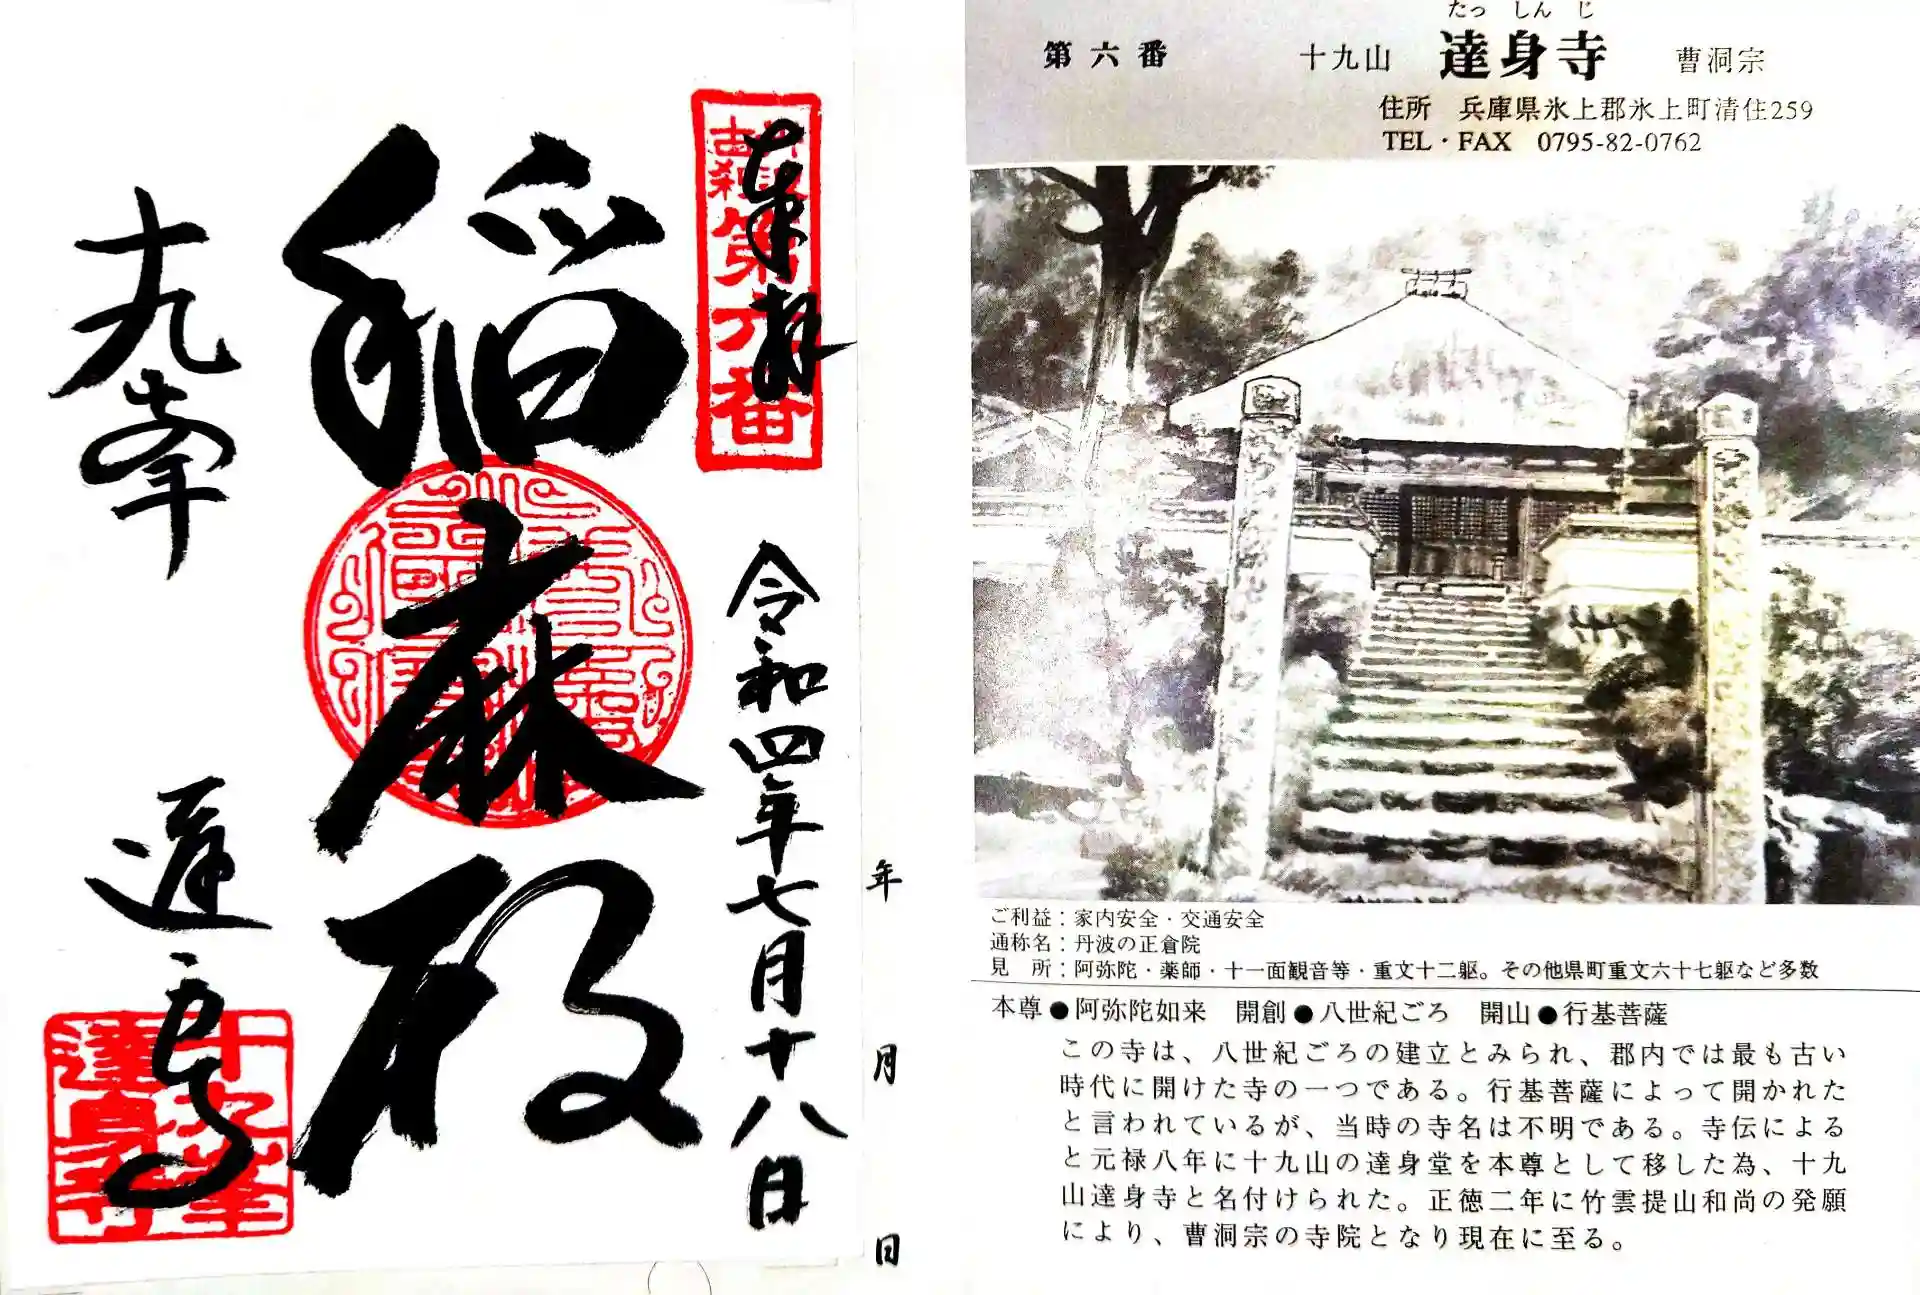 奉拝
第六番
令和四年七月十八日
十九峯
達身寺
年
月
日
たっしんじ
第六番 十九山 達身寺 曹洞宗
住所 兵庫県氷上郡氷上町清住259
TEL・FAX 0795-82-0762
ご利益：家内安全・交通安全
通称名：丹波の正倉院
見　所：阿弥陀・薬師・十一面観音等・重文十二躯。その他県町重文六十七躯など多数
本尊●阿弥陀如来 開創●八世紀ごろ 開山●行基菩薩
この寺は、八世紀ごろの建立とみられ、郡内では最も古い
時代に開けた寺の一つである。行基菩薩によって開かれた
と言われているが、当時の寺名は不明である。寺伝による
と元禄八年に十九山の達身堂を本尊として移した為、十九
山達身寺と名付けられた。正徳二年に竹雲提山和尚の発願
により、曹洞宗の寺院となり現在に至る。